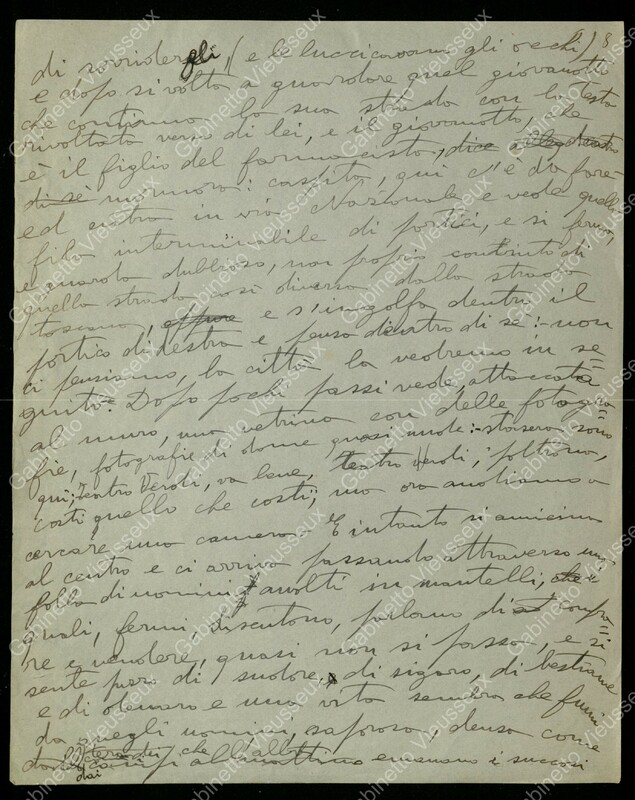 8
di sorridergli, (e le luccicavano gli occhi)
e dopo si volta a guardare quel giovanotto
che continua la sua strada con la testa
rivoltata verso di lei, e il giovanotto, che
è il figlio del farmacista, dice
di sè mormora: caspita, qui c'è da fare
ed entra in via Nazionale e vede quella
fila interminabile di portici, e si ferma,
e guarda dubbioso, non proprio contento di
quella strada così diversa dalla strada
toscana, oppure e s'ingolfa dentro il
portico di destra e pensa dentro di sè: - non
ci pensiamo, la città la vedremo in se=
guito = Dopo pochi passi vede, attaccata
al muro, una vetrina con delle fotogra=
fie, fotografie di donne quasi nude: - stasera sono
qui; teatro Verdi, va bene, teatro Verdi, poltrona,
costi quello che costi; ma ora andiamo a
cercare una camera - E intanto si avvicina
al centro e ci arriva passando attraverso una
folla di uomini avvolti in mantelli, che i
quali, fermi, discutono, parlano di compra=
re e vendere, quasi non si passa, e si
sente puzzo di sudore, di sigaro, di bestiame
e di denaro e una vita sembra che fumi
da quegli uomini, saporosa, densa come
dai campi all'alba emanano i succosi